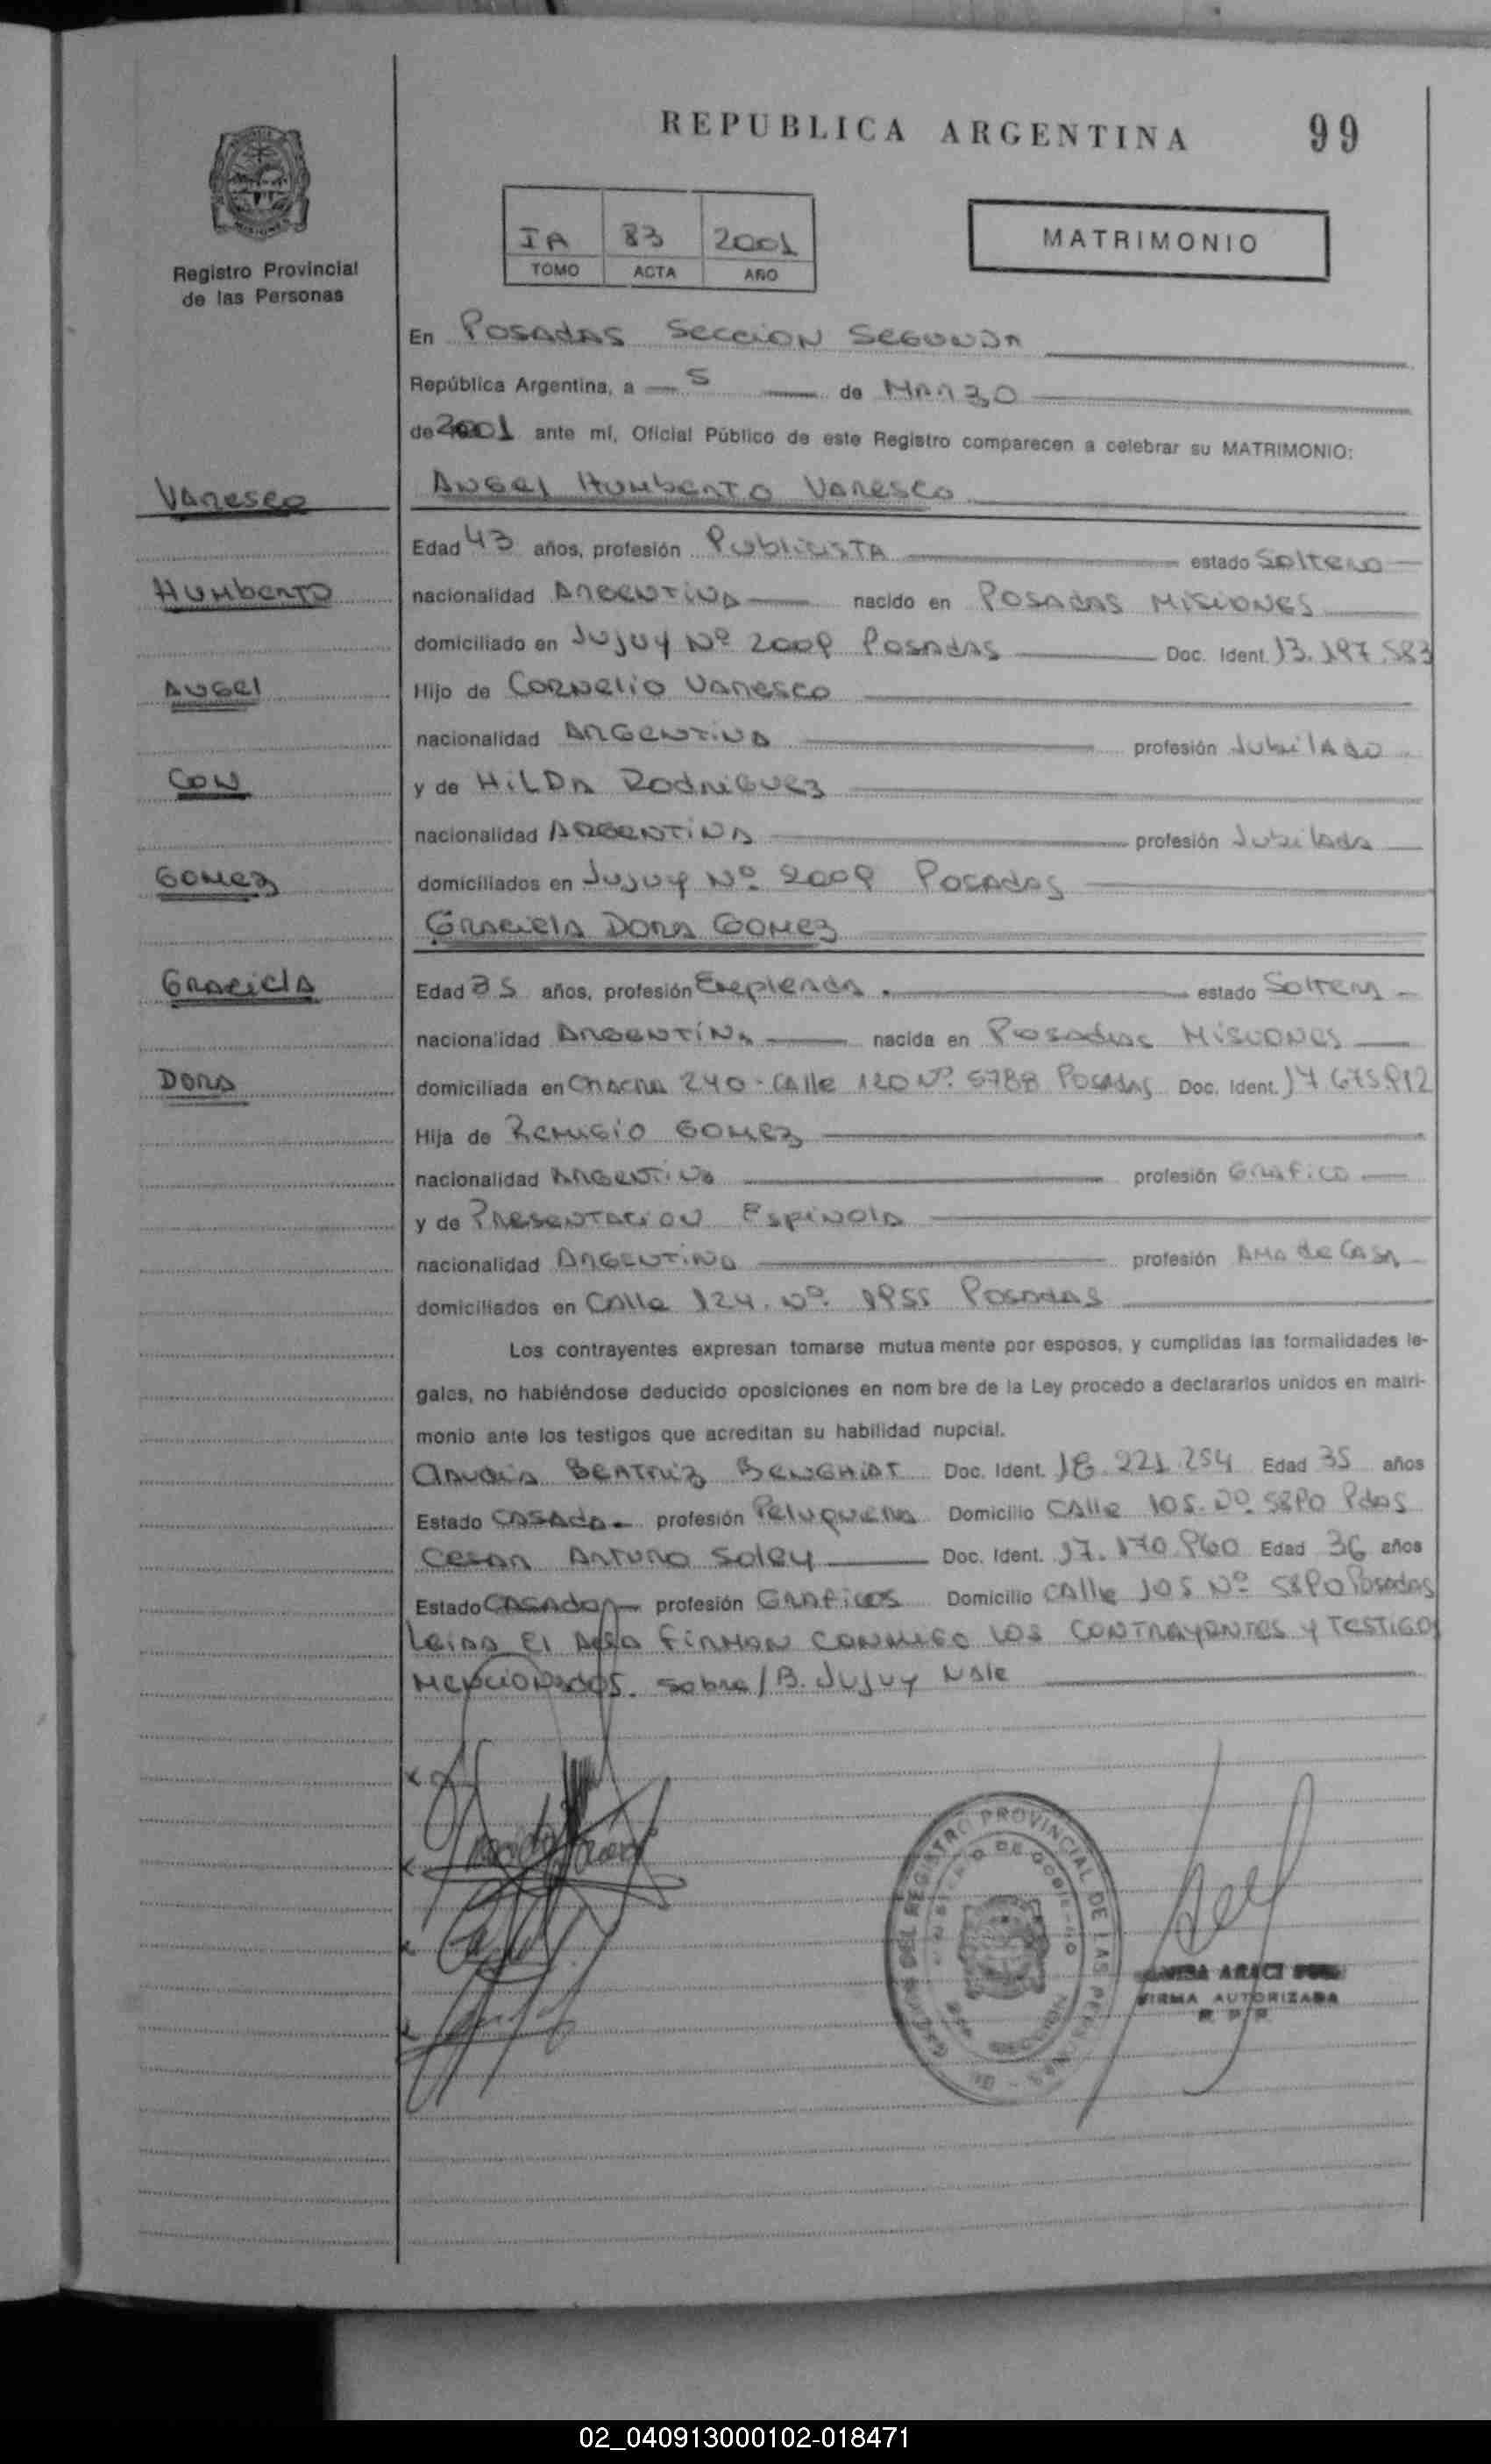 REPUBLICA ARGENTINA 99
IA 83 2001
TOMO ACTA AÑO
MATRIMONIO
Registro Provincial
de las Personas
En Posadas Seccion Segunda
República Argentina, a 5 de Marzo
de 2001 ante mí, Oficial Público de este Registro comparecen a celebrar su MATRIMONIO:
Varesco
Angel Humberto Varesco
Edad 43 años, profesión Publicista estado Soltero
Humberto
nacionalidad Argentina nacido en Posadas Misiones
domiciliado en Jujuy Nº 2009 Posadas Doc. Ident. 13.197.583
Angel
Hijo de Cornelio Varesco
nacionalidad Argentina profesión Jubilado
Con
y de Hilda Rodriguez
nacionalidad Argentina profesión Jubilada
Gomez
domiciliados en Jujuy Nº 2009 Posadas
Graciela Dora Gomez
Graciela
Edad 35 años, profesión estado Soltera
nacionalidad Argentina nacida en Posadas Misiones
Dora
domiciliada en Chacra 240 - Calle 120 Nº 5788 Posadas Doc. Ident. 17 675 912
Hija de Remigio Gomez
nacionalidad Argentina profesión Grafico
y de Presentacion Espinola
nacionalidad Argentina profesión Ama de Casa
domiciliados en Calle 124. Nº 1955 Posadas
Los contrayentes expresan tomarse mutua mente por esposos, y cumplidas las formalidades le-
gales, no habiéndose deducido oposiciones en nom bre de la Ley procedo a declararlos unidos en matri-
monio ante los testigos que acreditan su habilidad nupcial.
Claudia Beatriz Benghiat Doc. Ident. 18.221.254 Edad 35 años
Estado Casada profesión Peluquera Domicilio Calle 105. Nº 5890 Pdas
Cesar Arturo Soley Doc. Ident. 17.170.960 Edad 36 años
Estado Casado profesión Grafico Domicilio Calle 105 Nº 5890 Posadas
Leida el Acta firman conmigo los contrayentes y testigos
mencionados. Sobre/B. Jujuy Vale
DEL REGISTRO PROVINCIAL DE LAS PERSONAS
MINISTERIO DE GOBIERNO
MISIONES
ARACI
FIRMA AUTORIZADA
R P P
02_040913000102-018471